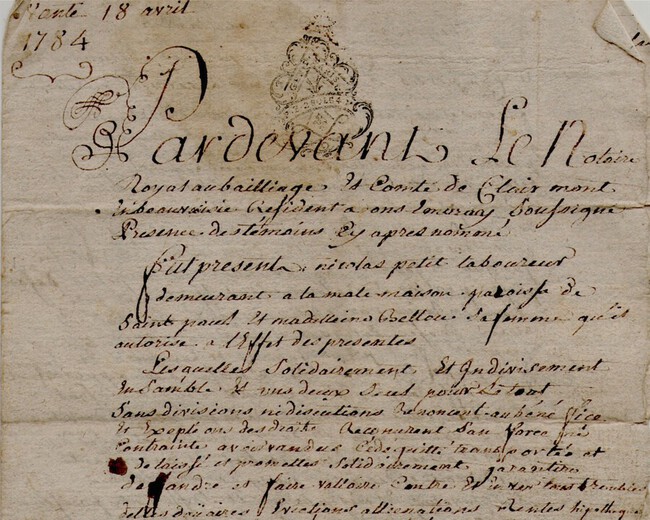 Vente 18 avril
1784
Pardevant Le Notoire
Royal au bailliage Et Comte de Clairmont
En beauvoisie Residant a ons En Soussigné
Presence des témoins Cy apres nommé
fut present nicolas petit laboureur
demeurant a la male maison paroisse de
Saint paul Et madelleine Sa femme qu'il
autorise a l'Effet des presentes
Lesquelles Solidairement Et Indivisement
Ensamble Un deux Seul pour Le tout
Sans divisions ne discutions Renoncent au béné fice
Et Exeptions des droits Reconurent San force né
Contrainte avoir vandue Cédé quitté transportée et
delaissé et promettes Solidairement garantire
deffandre et faire valloire Contre Et En vers tous troubles
dettes doüaires Evictions allienations Rentes hipotheque